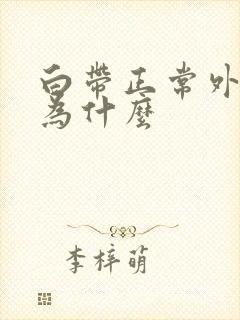 白帶正常外
為什麼
李梓萌